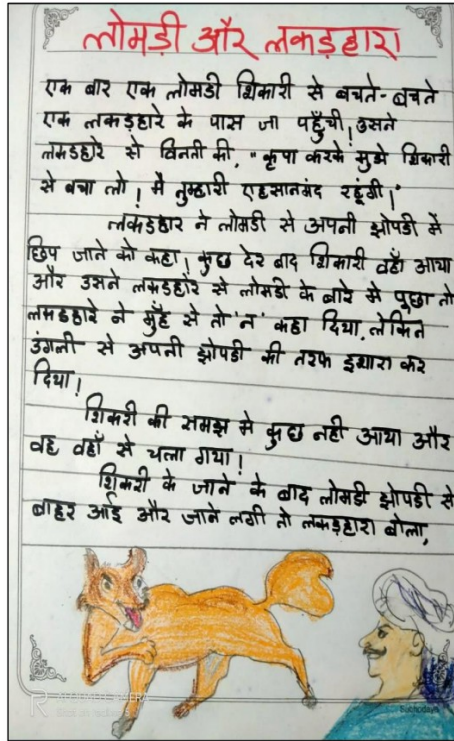 लोमड़ी और लकड़हारा
एक बार एक लोमडी शिकारी से बचते-बचते
एक लकड़हारे के पास जा पहुँची, उसने
लकडहारे से विनती की, "कृपा करके मुझे शिकारी
से बचा लो। मै तुम्हारी एहसानमंद रहूंगी।"
लकडहार ने लोमडी से अपनी झोपडी में
छिप जाने को कहा। कुछ देर बाद शिकारी वहाँ आया
और उसने लकडहारे से लोमडी के बारे मे पूछा तो
लकडहारे ने मुँह से तो 'न' कहा दिया, लेकिन
उंगली से अपनी झोपडी की तरफ इशारा कर
दिया।
शिकरी की समझ मे कुछ नही आया और
वह वहाँ से चला गया।
शिकरी के जाने के बाद लोमडी झोपडी से
बाहर आई और जाने लगी तो लकड़हारा बोला,
Subhodaya